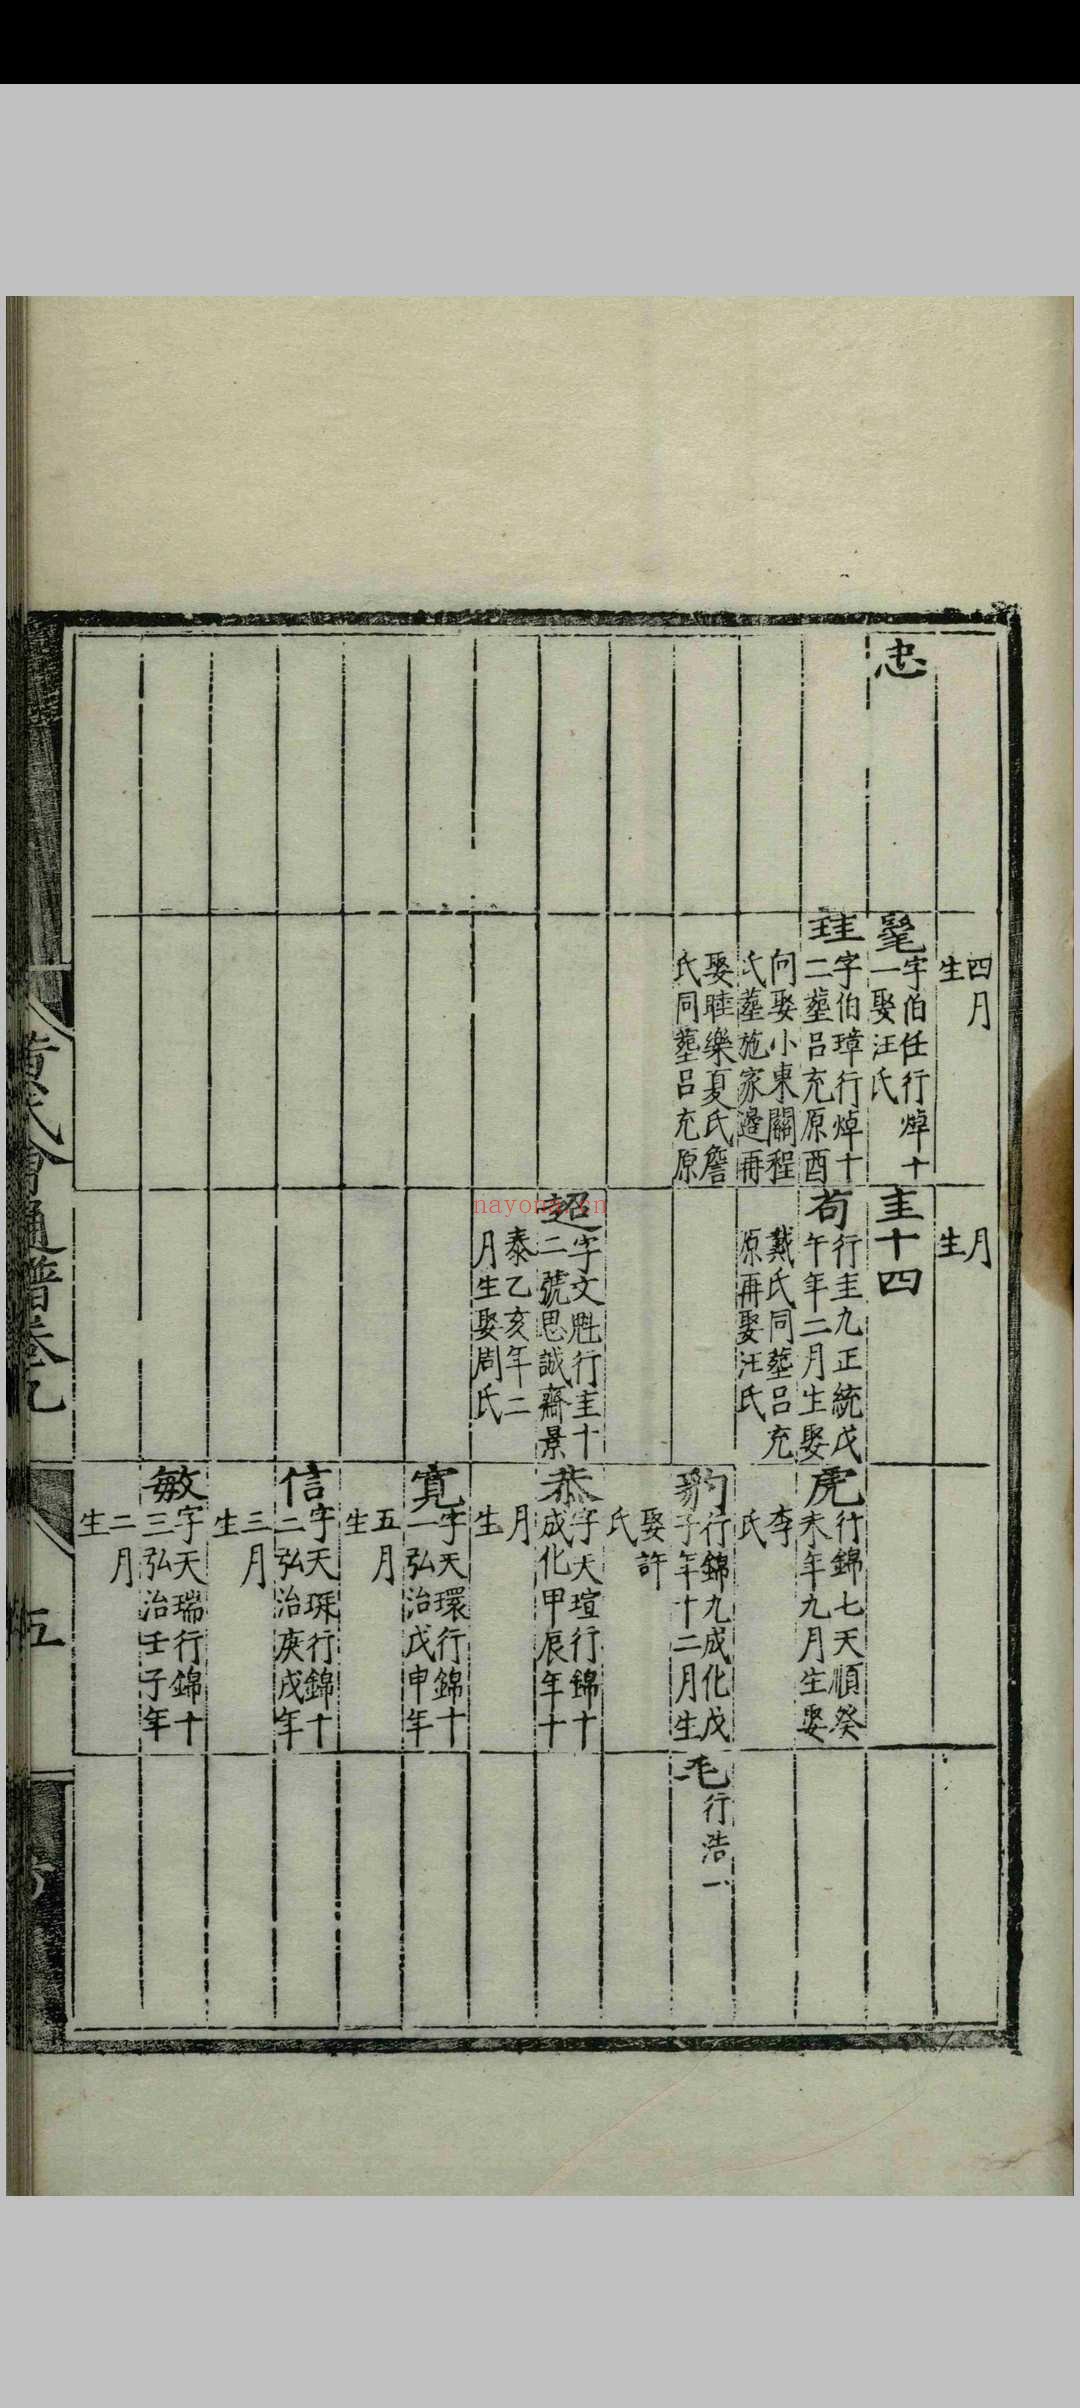 忠
四月
生
髦
字伯任行焯十
一娶汪氏
珪
字伯璋行焯十
二塟呂充原酉
向娶小東關程
氏塟施家邉再
娶睦樂夏氏詹
氏同塟呂充原
月
生
圭十四
苟
行圭九正統戊
午年二月生娶
戴氏同塟呂充
原再娶汪氏
超
字文魁行圭十
二號思誠齋景
泰乙亥年二
月生娶周氏
虎
行錦七天順癸
未年九月生娶
李
氏
豹
行錦九成化戊
子年十二月生
娶許
氏
恭
字天瑄行錦十
成化甲辰年十
月
生
寬
字天環行錦十
一弘治戊申年
五月
生
信
字天琛行錦十
二弘治庚戌年
三月
生
敏
字天瑞行錦十
三弘治壬子年
二月
生
毛
行浩一
黃氏會通譜卷九
五
nayona.cn